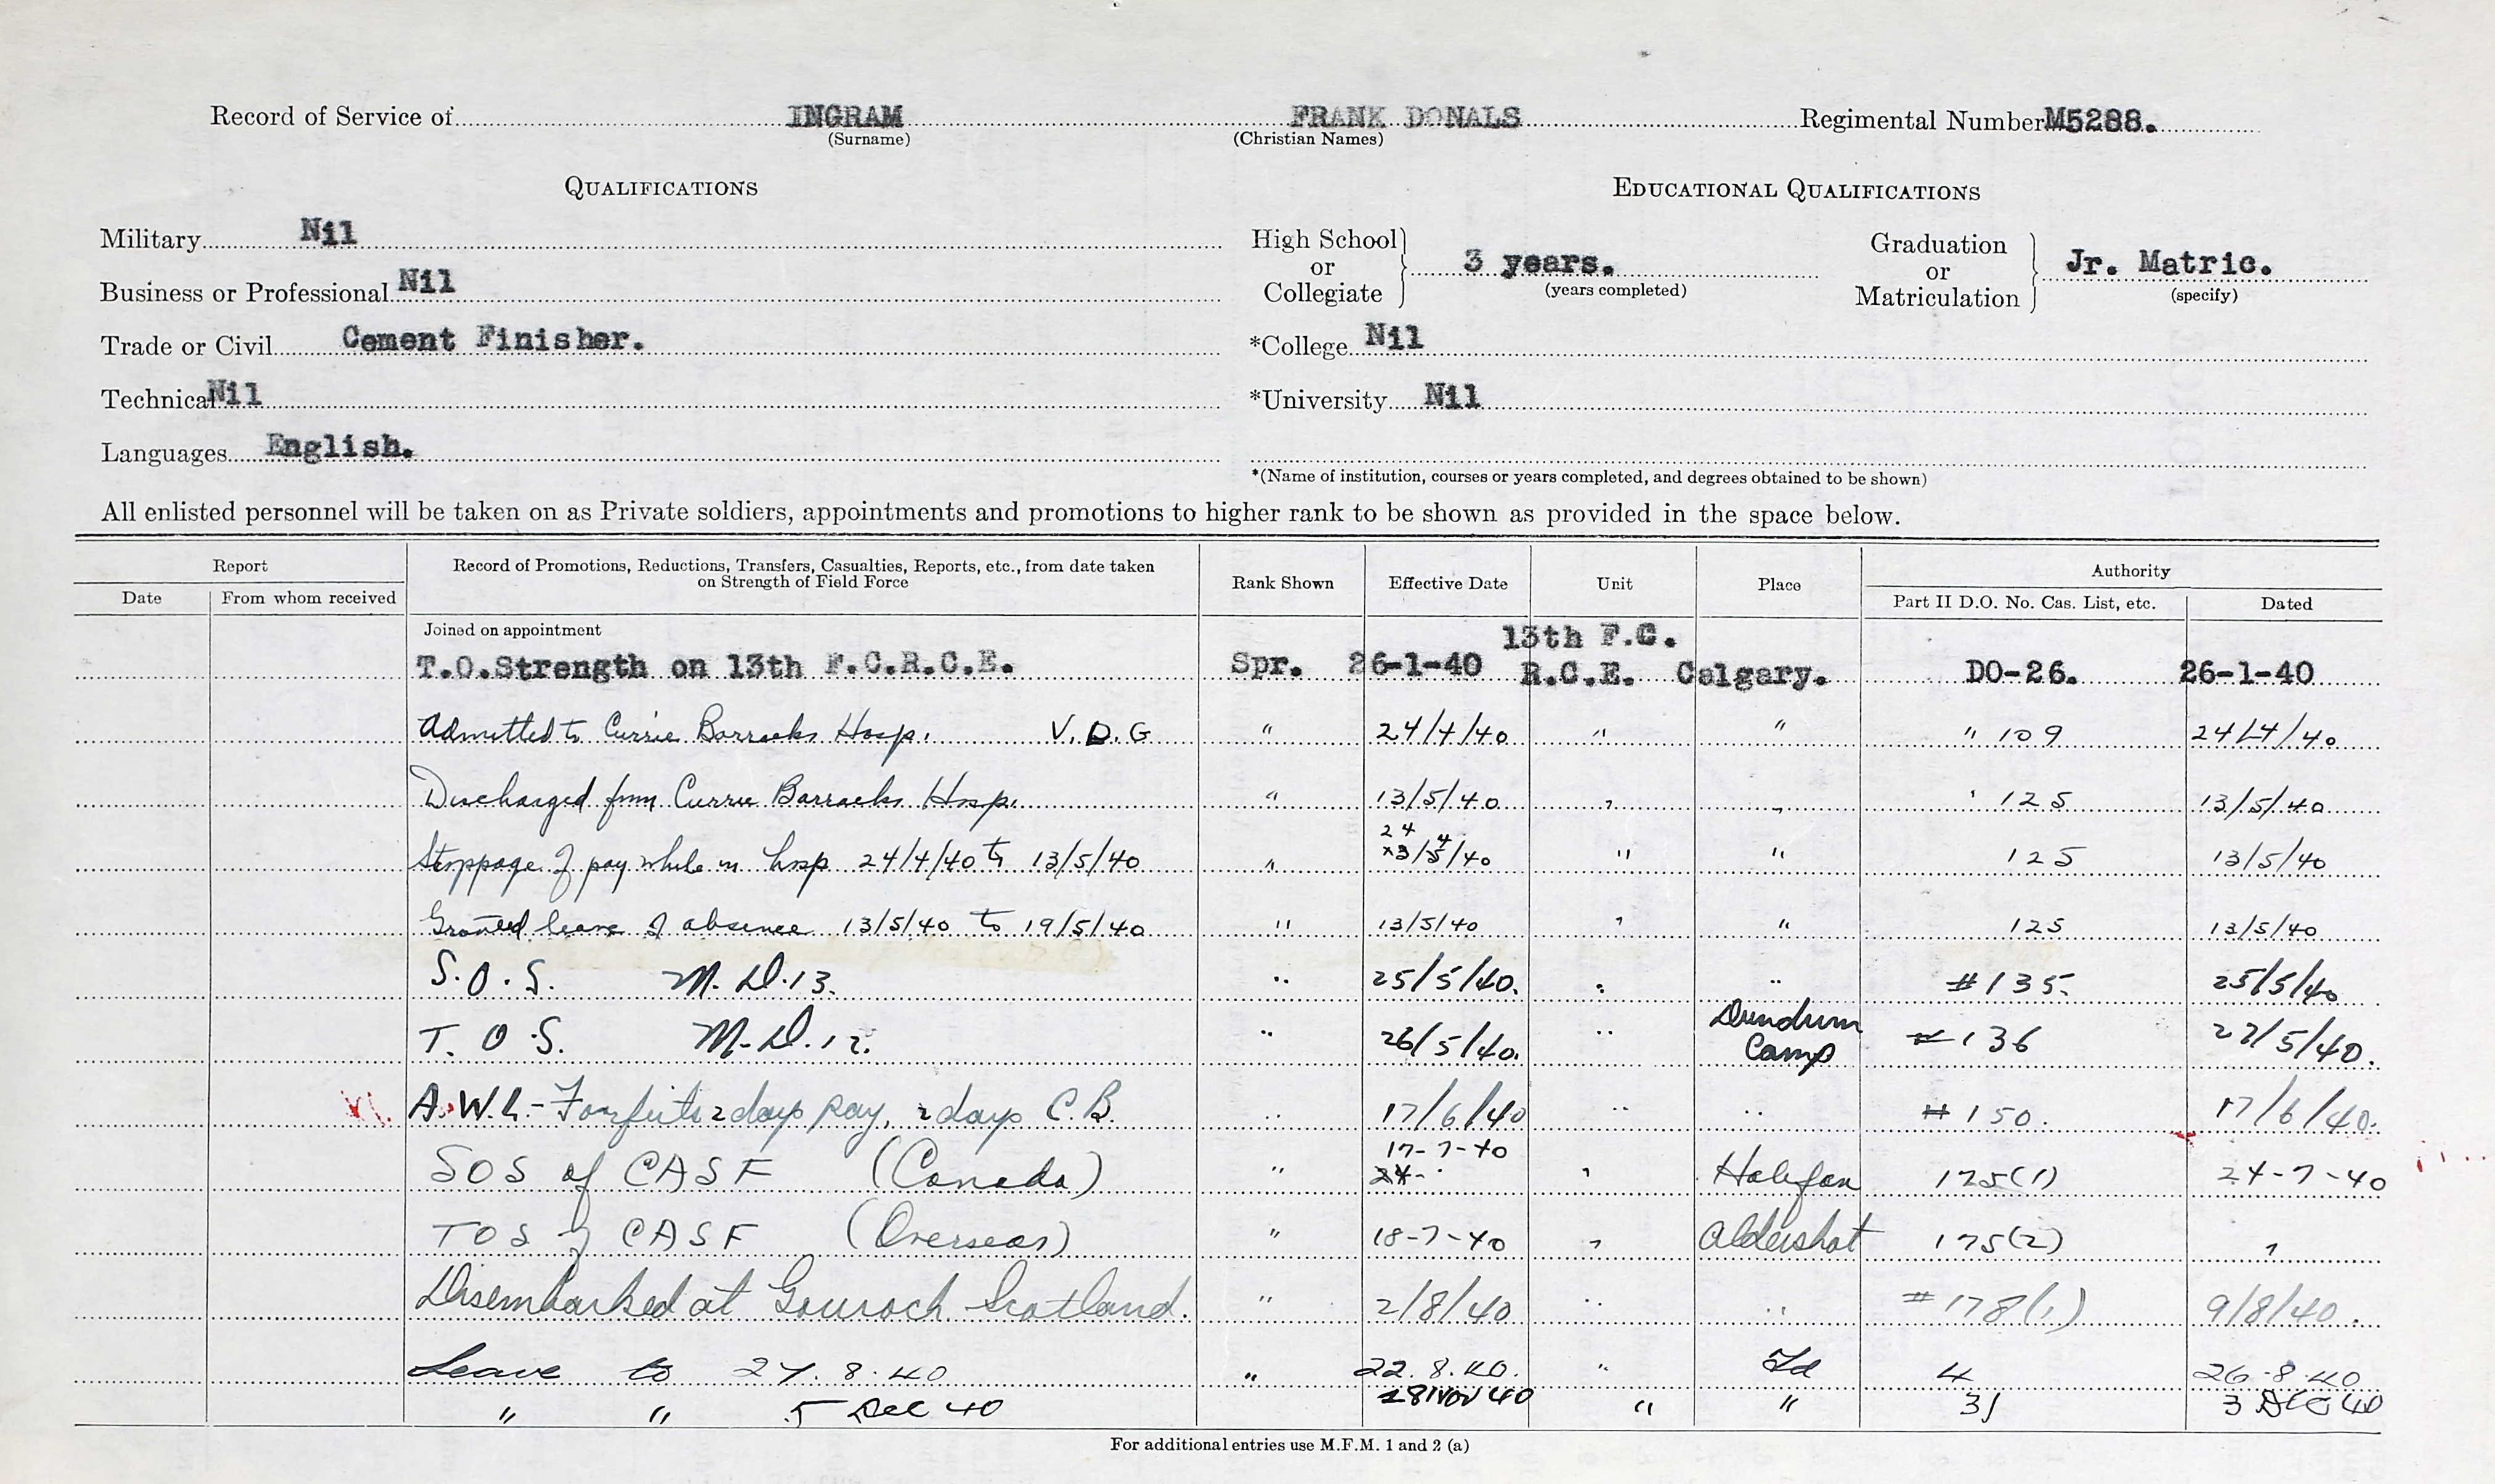 Record of Service of INGRAM FRANK DONALS Regimental Number M5288.
(Surname) (Christian Names)
QUALIFICATIONS
EDUCATIONAL QUALIFICATIONS
Military Nil
Business or Professional Nil
Trade or Civil Cement Finisher.
Technical Nil
Languages English.
High School or Collegiate 3 years. (years completed)
Graduation or Matriculation Jr. Matric. (specify)
*College Nil
*University Nil
*(Name of institution, courses or years completed, and degrees obtained to be shown)
All enlisted personnel will be taken on as Private soldiers, appointments and promotions to higher rank to be shown as provided in the space below.
Report
Date From whom received
Record of Promotions, Reductions, Transfers, Casualties, Reports, etc., from date taken
on Strength of Field Force
Rank Shown Effective Date Unit Place
Authority
Part II D.O. No. Cas. List, etc. Dated
Joined on appointment
13th F.C.
T.O.Strength on 13th F.C.R.C.E. Spr. 26-1-40 R.C.E. Calgary. DO-26. 26-1-40
Admitted to Currie Barracks Hosp. V.D.G " 24/4/40 " " " 109 24/4/40
Discharged from Currie Barracks Hosp. " 13/5/40 " " " 125 13/5/40
Stoppage of pay while in hosp 24/4/40 to 13/5/40 " 24/4/40 " " 125 13/5/40
Granted leave of absence 13/5/40 to 19/5/40 " 13/5/40 " " 125 13/5/40
S.O.S. M.D.13. " 25/5/40. " " #135. 25/5/40
T.O.S. M.D.12. " 26/5/40. " Dundurn Camp #136 27/5/40.
A.W.L.- Forfeits 2 days pay, 2 days C.B. " 17/6/40 " " #150. 17/6/40.
SOS of CASF (Canada) " 17-7-40 " Halifax 175(1) 24-7-40
TOS of CASF (Overseas) " 18-7-40 " Aldershot 175(2) "
Disembarked at Gourock Scotland. " 2/8/40 " " #178(1) 9/8/40.
Leave to 27.8.40 " 22.8.40. " Fd 4 26.8.40
" " 5 Dec 40 28 Nov 40 " " 31 3 DEC 40
For additional entries use M.F.M. 1 and 2 (a)